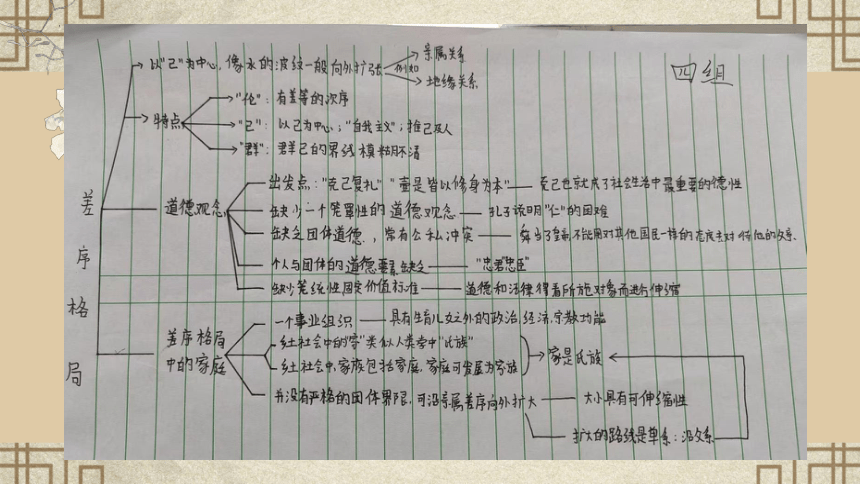 四组
差序格局
以"己"为中心,像水的波纹一般向外扩张 例如 亲属关系
地缘关系
特点
"伦":有差等的次序
"己":以己为中心;"自我主义";推己及人
"群":群己的界线模糊不清
道德观念
出发点:"克己复礼" "壹是皆以修身为本"——克己也就成了社会生活中最重要的德性
缺少一个笼罩性的道德观念——孔子说明"仁"的困难
缺乏团体道德,常有公私冲突——舜当了皇帝不能用对其他国民一样的态度去对待他的父亲.
个人与团体的道德要素缺乏——"忠君""忠臣"
缺少笼统性固定价值标准——道德和法律得看所施对象而进行伸缩
差序格局中的家庭
一个事业组织——具有生育儿女之外的政治,经济,宗教功能
乡土社会中的"家"类似人类学中"氏族"
乡土社会中,家族包括家庭,家庭可发展为家族
家是氏族
并没有严格的团体界限,可沿亲属差序向外扩大——大小具有可伸缩性
扩大的路线是单系:沿父系